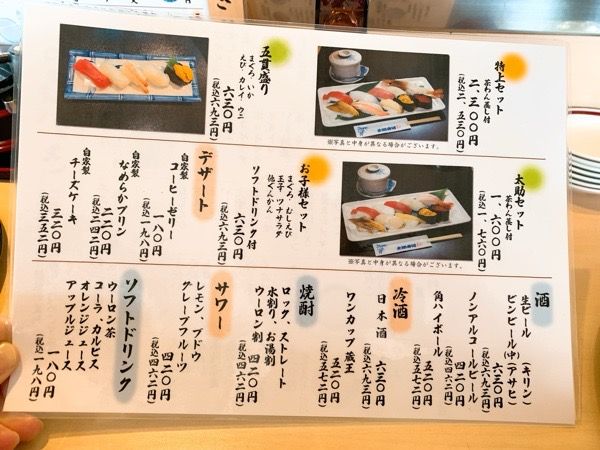 特上セット
茶わん蒸し付
二、三〇〇円
(税込二、五三〇円)
※写真と中身が異なる場合がございます。
五貫盛り
まぐろ、いか
えび、カレイ、ウニ
六三〇円
(税込六九三円)
太助セット
茶わん蒸し付
一、六〇〇円
(税込一、七六〇円)
※写真と中身が異なる場合がございます。
お子様セット
まぐろ、むしえび
玉子、ツナサラダ
他ぐんかん、
ソフトドリンク付
六三〇円
(税込六九三円)
デザート
自家製
コーヒーゼリー
一八〇円
(税込一九八円)
自家製
なめらかプリン
二二〇円
(税込二四二円)
自家製
チーズケーキ
三二〇円
(税込三五二円)
酒
生ビール (キリン)
ビンビール(中)(アサヒ)
六三〇円
(税込六九三円)
ノンアルコールビール
四二〇円
(税込四六二円)
角ハイボール
五二〇円
(税込五七二円)
冷酒
日本酒
六三〇円
(税込六九三円)
ワンカップ蔵王
五二〇円
(税込五七二円)
焼酎
ロック、ストレート
水割り、お湯割
ウーロン割
四二〇円
(税込四六二円)
サワー
レモン、ブドウ
グレープフルーツ
四二〇円
(税込四六二円)
ソフトドリンク
ウーロン茶
コーラ、カルピス
オレンジジュース
アップルジュース
一八〇円
(税込一九八円)